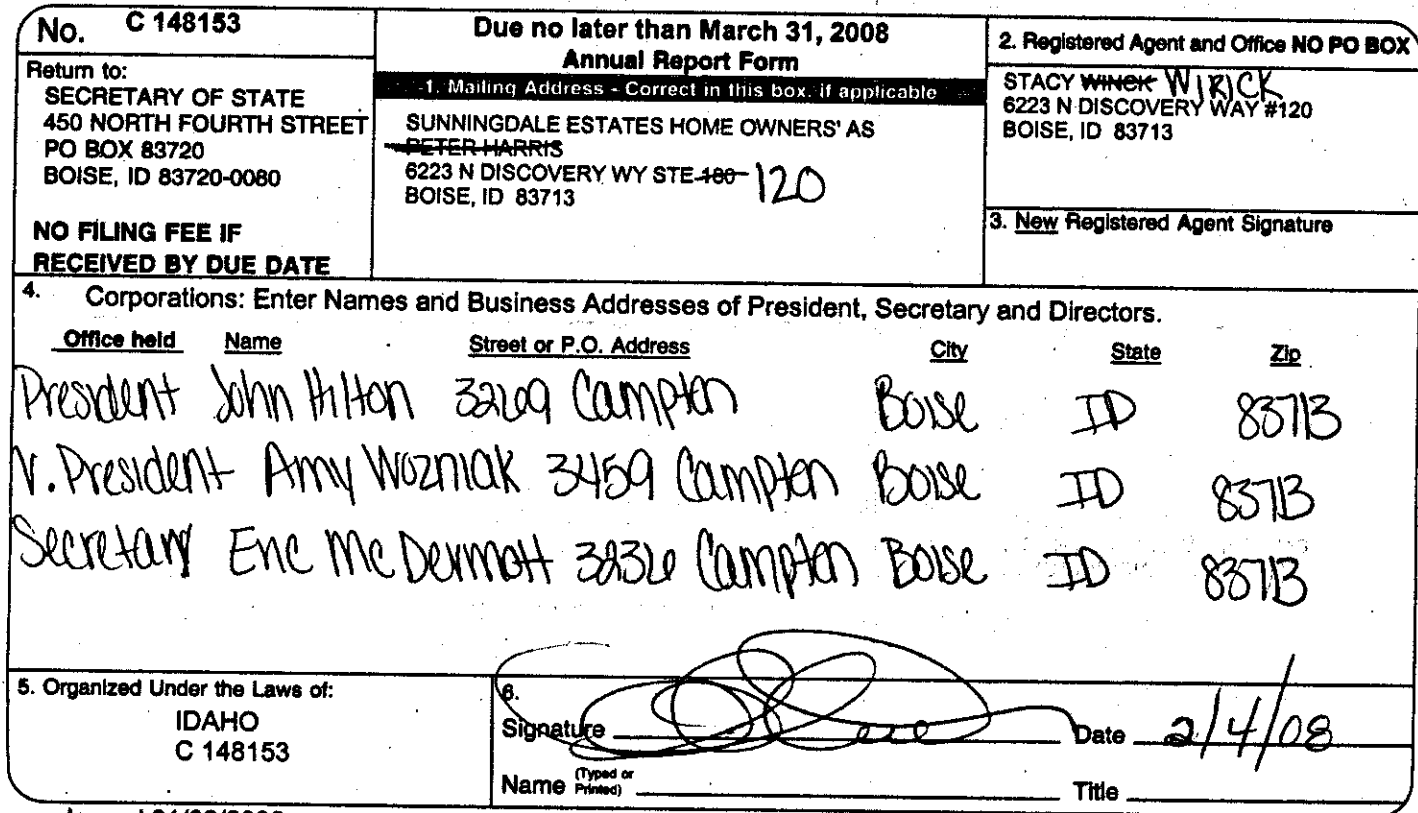 No. C 148153
Return to:
SECRETARY OF STATE
450 NORTH FOURTH STREET
PO BOX 83720
BOISE, ID 83720-0080
NO FILING FEE IF
RECEIVED BY DUE DATE
Due no later than March 31, 2008
Annual Report Form
1. Mailing Address - Correct in this box. if applicable
SUNNINGDALE ESTATES HOME OWNERS' AS
PETER HARRIS
6223 N DISCOVERY WY STE 180 120
BOISE, ID 83713
2. Registered Agent and Office NO PO BOX
STACY WINCK WIRICK
6223 N DISCOVERY WAY #120
BOISE, ID 83713
3. New Registered Agent Signature
4. Corporations: Enter Names and Business Addresses of President, Secretary and Directors.
Office held Name Street or P.O. Address City State Zip
President John Hilton 3269 Campton Boise ID 83713
V. President Amy Wozniak 3459 Campton Boise ID 83713
Secretary Eric McDermott 3236 Campton Boise ID 83713
5. Organized Under the Laws of:
IDAHO
C 148153
6.
Signature Date 2/4/08
Name (Typed or Printed) Title